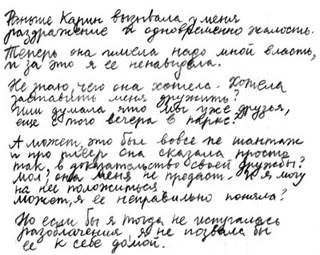 Раньше Карин вызывала у меня
раздражение и одновременно жалость.
Теперь она имела надо мной власть,
и за это я её ненавидела.
Не знаю, чего она хотела. Хотела
заставить меня дружить?
Или думала, что мы уже друзья,
ещё с того вечера в парке?
А может, это был вовсе не шантаж
и про плеер она сказала просто
так, в доказательство своей дружбы?
Мол, она меня не предаст. И я могу
на неё положиться.
Может, я её неправильно поняла?
Но если бы я тогда не испугалась
разоблачения, я не позвала бы
её к себе домой.